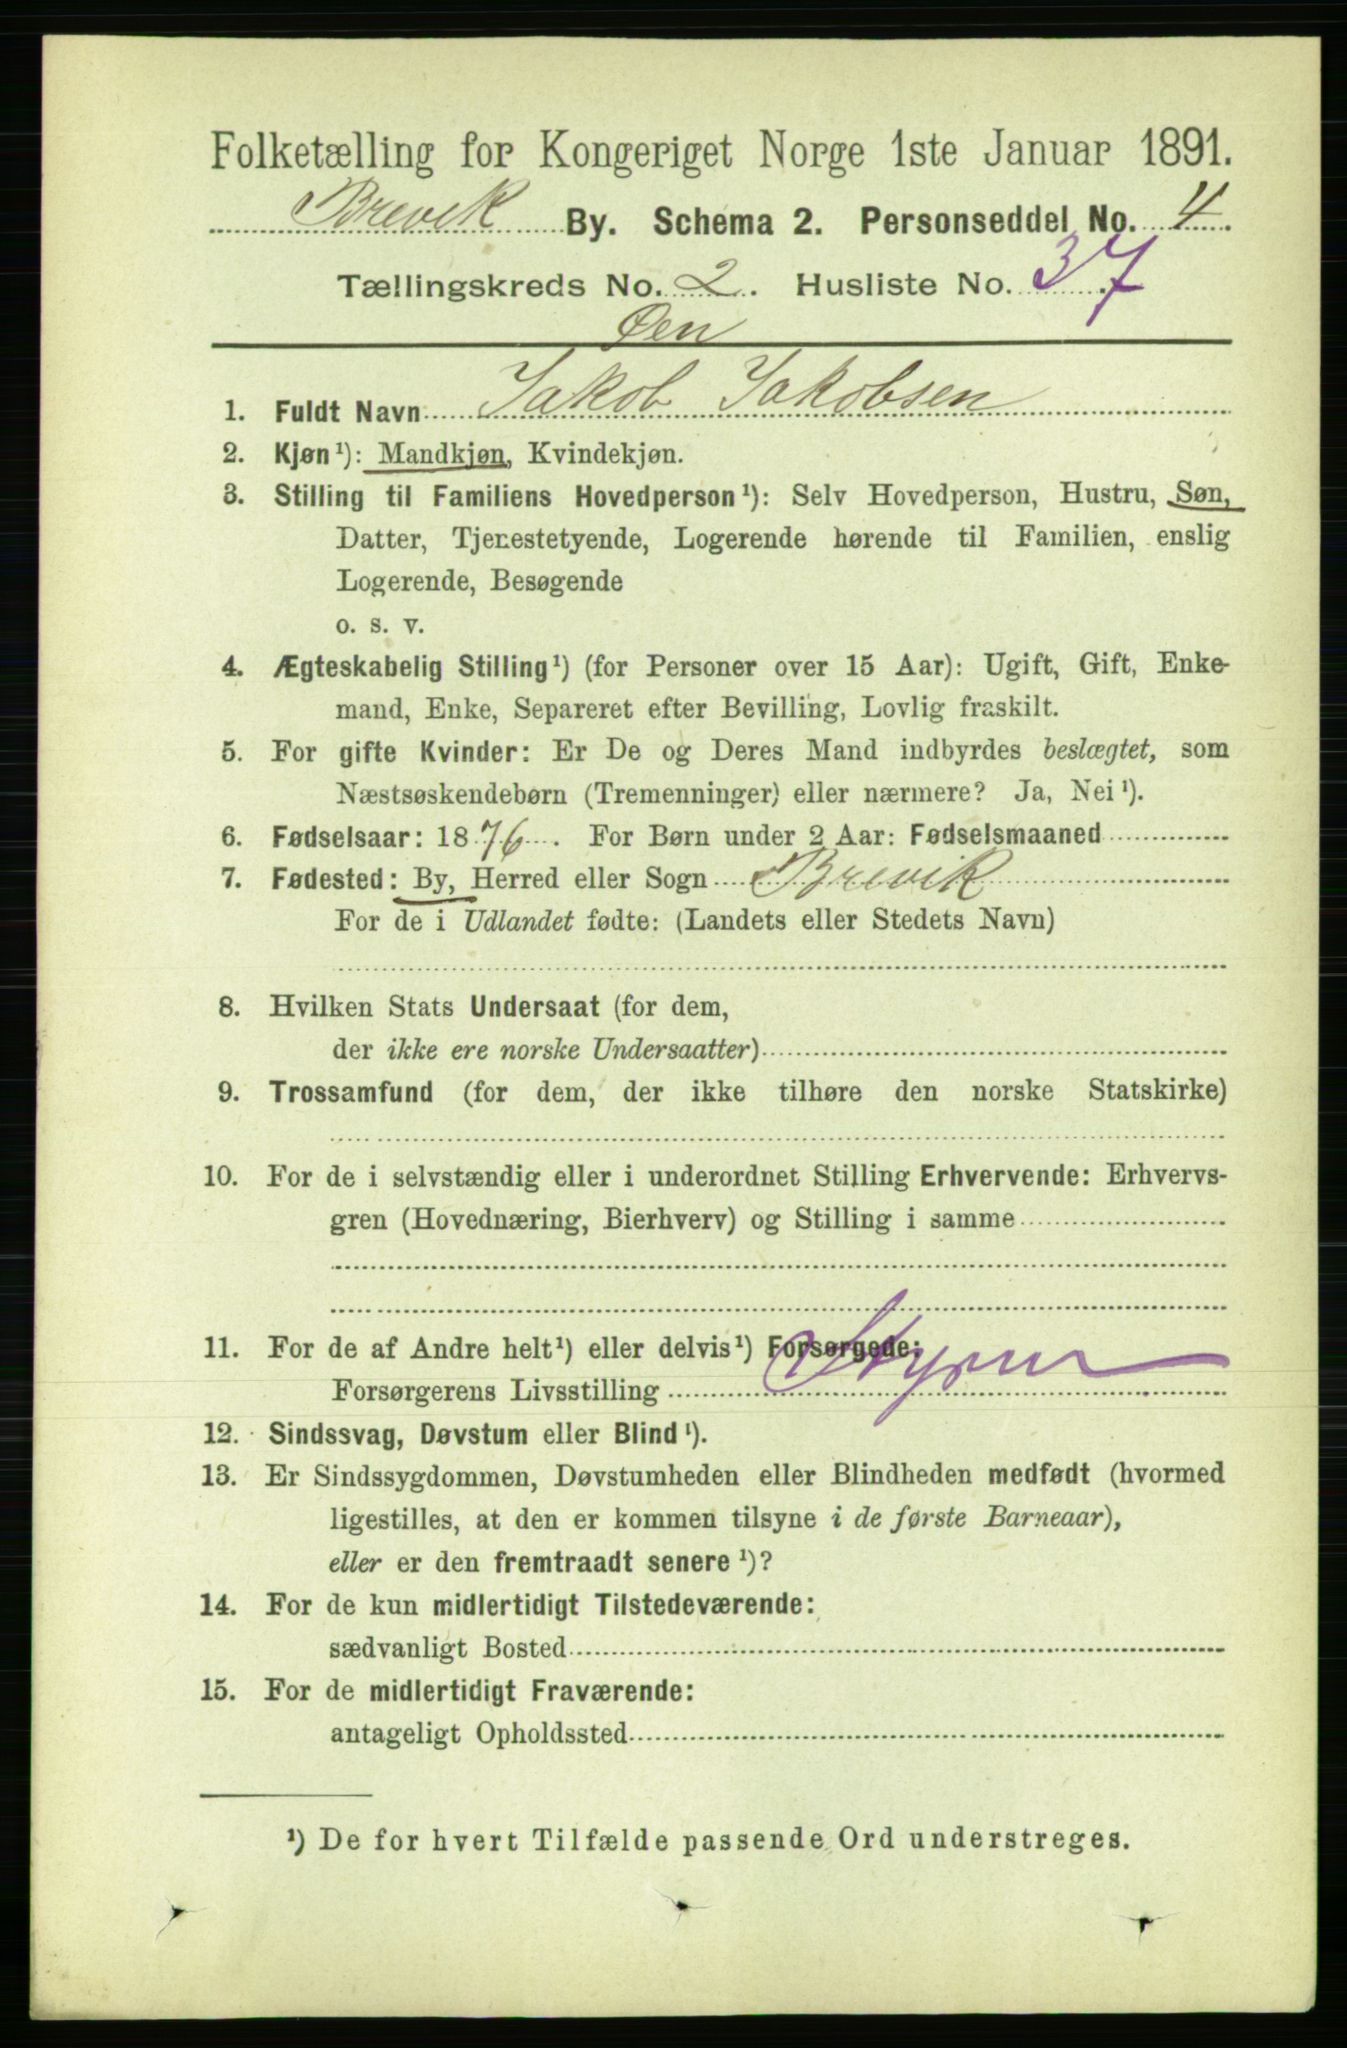 Folketælling for Kongeriget Norge 1ste Januar 1891.
Brevik By. Schema 2. Personseddel No. 4.
Tællingskreds No. 2. Husliste No. 37
Øen
1. Fuldt Navn Jakob Jakobsen
2. Kjøn¹): Mandkjøn, Kvindekjøn.
3. Stilling til Familiens Hovedperson¹): Selv Hovedperson, Hustru, Søn,
Datter, Tjenestetyende, Logerende hørende til Familien, enslig
Logerende, Besøgende
o. s. v.
4. Ægteskabelig Stilling¹) (for Personer over 15 Aar): Ugift, Gift, Enke-
mand, Enke, Separeret efter Bevilling, Lovlig fraskilt.
5. For gifte Kvinder: Er De og Deres Mand indbyrdes beslægtet, som
Næstsøskendebørn (Tremenninger) eller nærmere? Ja, Nei¹).
6. Fødselsaar: 1876. For Børn under 2 Aar: Fødselsmaaned
7. Fødested: By, Herred eller Sogn Brevik
For de i Udlandet fødte: (Landets eller Stedets Navn)
8. Hvilken Stats Undersaat (for dem,
der ikke ere norske Undersaatter)
9. Trossamfund (for dem, der ikke tilhøre den norske Statskirke)
10. For de i selvstændig eller i underordnet Stilling Erhvervende: Erhvervs-
gren (Hovednæring, Bierhverv) og Stilling i samme
11. For de af Andre helt¹) eller delvis¹) Forsørgede:
Forsørgerens Livsstilling
12. Sindssvag, Døvstum eller Blind¹).
13. Er Sindssygdommen, Døvstumheden eller Blindheden medfødt (hvormed
ligestilles, at den er kommen tilsyne i de første Barneaar),
eller er den fremtraadt senere¹)?
14. For de kun midlertidigt Tilstedeværende:
sædvanligt Bosted
15. For de midlertidigt Fraværende:
antageligt Opholdssted
¹) De for hvert Tilfælde passende Ord understreges.